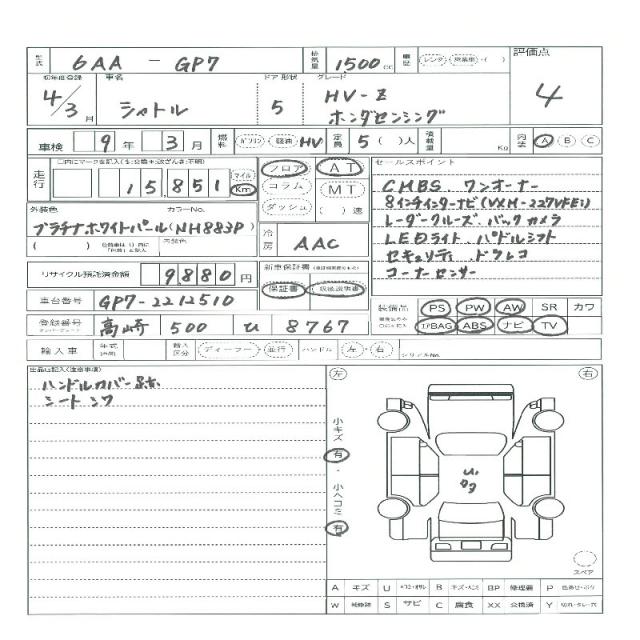 型式 6AA - GP7 排気量 1500 cc 車歴 レンタ・( 乗用車 )・( ) 評価点
初年度登録 車名 ドア 形状 グレード
4/3月 シャトル 5 HV-Z 4
ホンダセンシング
車検 9年 3月 燃料 ガソリン・軽油・HV 定員 5( )人 積載量 Kg 内装 A B C
走行 15,851 マイル Km
フロア コラム ダッシュ AT MT ( )速
セールスポイント
CMBS. ワンオーナー
8インチインターナビ(VXM-227VFEi)
レーダークルーズ. バックカメラ
LEDライト. パドルシフト
セキュリティ. ドラレコ
コーナーセンサー
外装色 カラーNo.
プラチナホワイトパール(NH883P)
内装色
冷房 AAC
リサイクル預託済金額 9880円
新車保証書 保証書 取扱説明書
車台番号 GP7-2212510
装備品 PS PW AW SR カワ
エアBAG ABS ナビ TV
登録番号 高崎 500 ひ 8767
輸入車 年式 輸入区分 ディーラー・並行 ハンドル 左・右 シリアルNo.
出品店記入(注意事項)
ハンドルカバー跡
シートシワ
左 右
小キズ 有・小ヘコミ 有
スペア
A キズ U B キズ・ヘコミ BP 修理要 P
W S サビ C 腐食 XX 交換済 Y